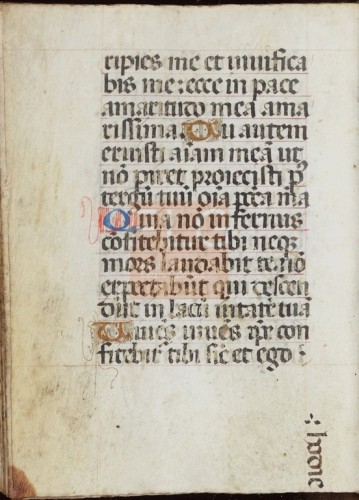 ripies me et vivifica
bis me: ecce in pace
amaritudo mea ama
rissima. Tu autem
eruisti aīam meā ut
nō piret proiecisti p̱
tergū tuū oīa pc̄ta m̄a
Quia nō infernus
cōfitebitur tibi neq̄
mors laudabit te nō
expectabūt qui descen
dūt in lacū v̄itatē tuā
Vivēs vivēs ip̄e con
fitebit̄ tibi sic et ego :